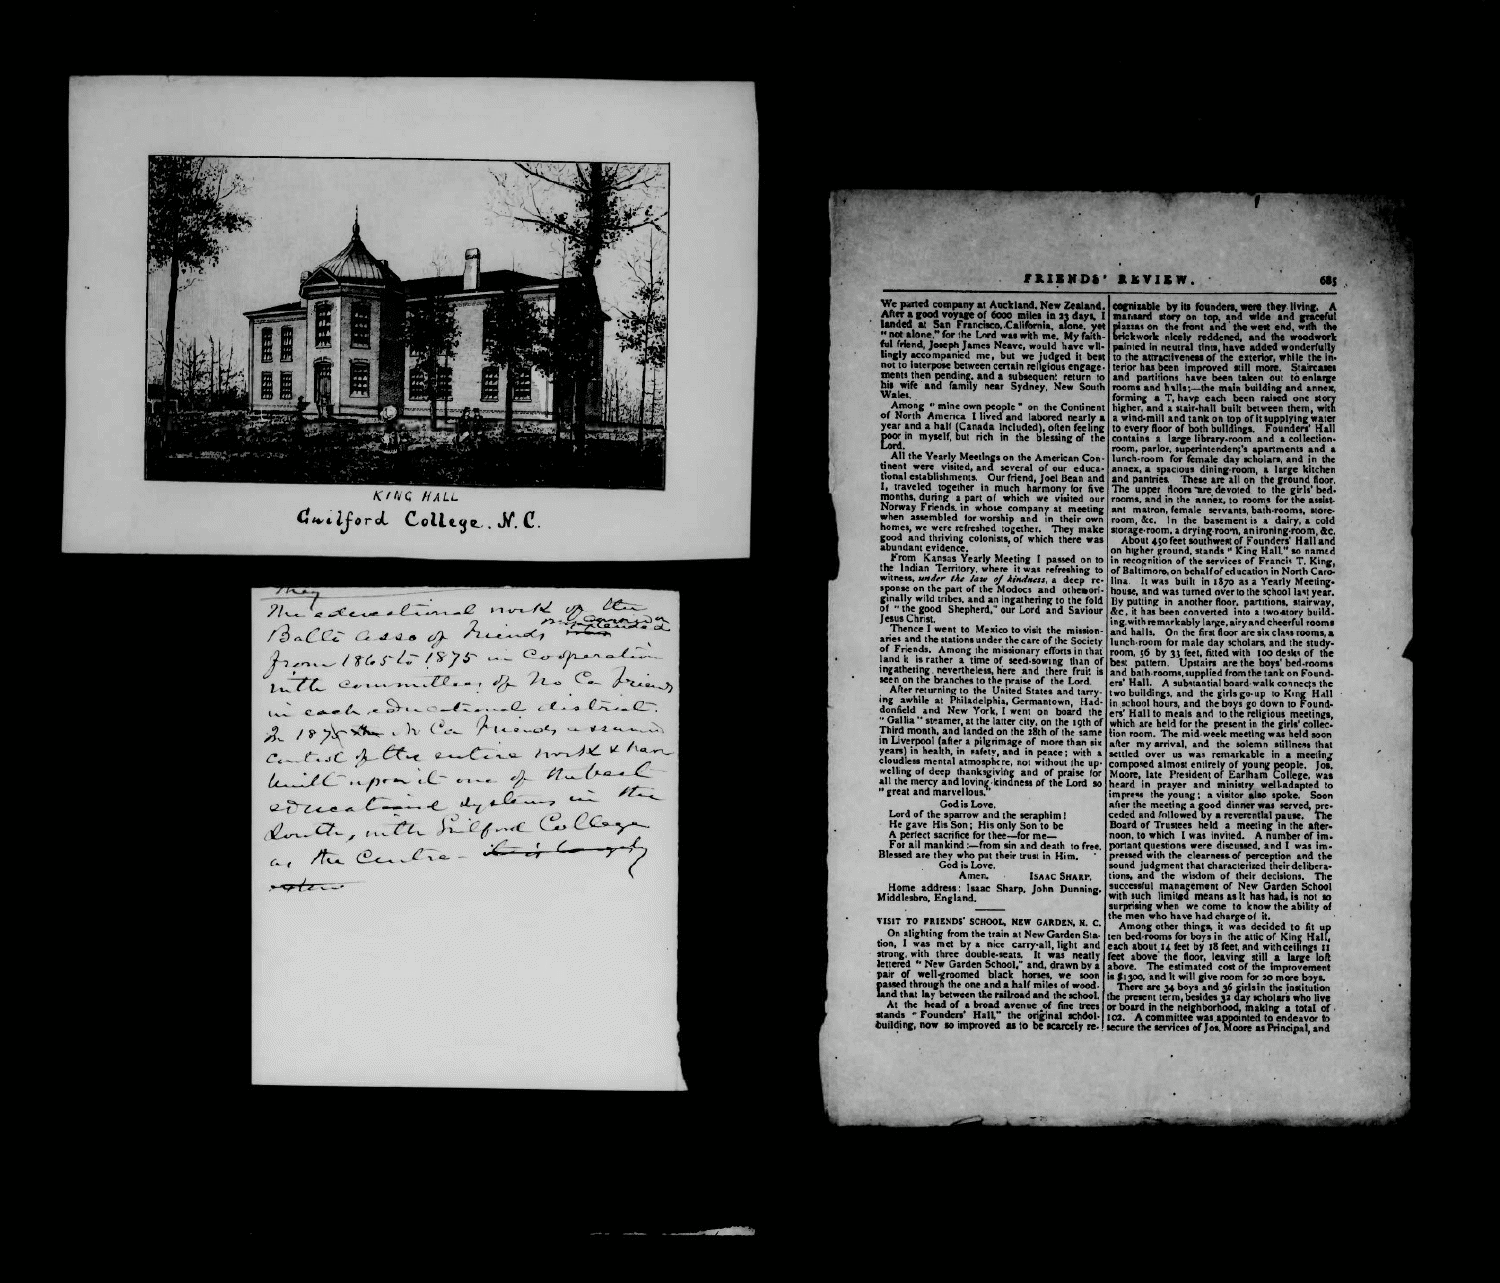 KING HALL
Guilford College. N.C.
They
The educational work of the
Balto Asso of Friends was carried on
from 1865 to 1875 in cooperation
with committees of No Ca Friends
in each educational district.
In 1875 N Ca Friends assumed
control of the entire work & have
built upon it one of the best
educational systems in the
South, with Guilford College
as the Centre -
FRIENDS' REVIEW. 685
We parted company at Auckland, New Zealand.
After a good voyage of 6000 miles in 23 days, I
landed at San Francisco, California, alone, yet
"not alone," for the Lord was with me. My faith-
ful friend, Joseph James Neave, would have wil-
lingly accompanied me, but we judged it best
not to interpose between certain religious engage-
ments then pending, and a subsequent return to
his wife and family near Sydney, New South
Wales.
Among "mine own people" on the Continent
of North America I lived and labored nearly a
year and a half (Canada included), often feeling
poor in myself, but rich in the blessing of the
Lord.
All the Yearly Meetings on the American Con-
tinent were visited, and several of our educa-
tional establishments. Our friend, Joel Bean and
I, traveled together in much harmony for five
months, during a part of which we visited our
Norway Friends, in whose company at meeting
when assembled for worship and in their own
homes, we were refreshed together. They make
good and thriving colonists, of which there was
abundant evidence.
From Kansas Yearly Meeting I passed on to
the Indian Territory, where it was refreshing to
witness, under the law of kindness, a deep re-
sponse on the part of the Modocs and other ori-
ginally wild tribes, and an ingathering to the fold
of "the good Shepherd," our Lord and Saviour
Jesus Christ.
Thence I went to Mexico to visit the mission-
aries and the stations under the care of the Society
of Friends. Among the missionary efforts in that
land it is rather a time of seed-sowing than of
ingathering, nevertheless, here and there fruit is
seen on the branches to the praise of the Lord.
After returning to the United States and tarry-
ing awhile at Philadelphia, Germantown, Had-
donfield and New York, I went on board the
"Gallia" steamer, at the latter city, on the 19th of
Third month, and landed on the 28th of the same
in Liverpool (after a pilgrimage of more than six
years) in health, in safety, and in peace; with a
cloudless mental atmosphere, not without the up-
welling of deep thanksgiving and of praise for
all the mercy and loving-kindness of the Lord so
"great and marvellous."
God is Love.
Lord of the sparrow and the seraphim!
He gave His Son; His only Son to be
A perfect sacrifice for thee—for me—
For all mankind:—from sin and death to free.
Blessed are they who put their trust in Him.
God is Love.
Amen. ISAAC SHARP.
Home address: Isaac Sharp, John Dunning,
Middlesbro, England.
VISIT TO FRIENDS' SCHOOL, NEW GARDEN, N. C.
On alighting from the train at New Garden Sta-
tion, I was met by a nice carry-all, light and
strong, with three double-seats. It was neatly
lettered "New Garden School," and, drawn by a
pair of well-groomed black horses, we soon
passed through the one and a half miles of wood-
land that lay between the railroad and the school.
At the head of a broad avenue of fine trees
stands "Founders' Hall," the original school-
building, now so improved as to be scarcely re-
cognizable by its founders, were they living. A
mansard story on top, and wide and graceful
piazzas on the front and the west end, with the
brickwork nicely reddened, and the woodwork
painted in neutral tints, have added wonderfully
to the attractiveness of the exterior, while the in-
terior has been improved still more. Staircases
and partitions have been taken out to enlarge
rooms and halls;—the main building and annex,
forming a T, have each been raised one story
higher, and a stair-hall built between them, with
a wind-mill and tank on top of it supplying water
to every floor of both buildings. Founders' Hall
contains a large library-room and a collection-
room, parlor, superintendent's apartments and a
lunch-room for female day scholars, and in the
annex, a spacious dining-room, a large kitchen
and pantries. These are all on the ground floor.
The upper floors are devoted to the girls' bed-
rooms, and in the annex, to rooms for the assist-
ant matron, female servants, bath-rooms, store-
room, &c. In the basement is a dairy, a cold
storage-room, a drying-room, an ironing-room, &c.
About 450 feet southwest of Founders' Hall and
on higher ground, stands "King Hall," so named
in recognition of the services of Francis T. King,
of Baltimore, on behalf of education in North Caro-
lina. It was built in 1870 as a Yearly Meeting-
house, and was turned over to the school last year.
By putting in another floor, partitions, stairway,
&c, it has been converted into a two-story build-
ing, with remarkably large, airy and cheerful rooms
and halls. On the first floor are six class rooms, a
lunch-room for male day scholars, and the study-
room, 56 by 33 feet, fitted with 100 desks of the
best pattern. Upstairs are the boys' bed-rooms
and bath-rooms, supplied from the tank on Found-
ers' Hall. A substantial board-walk connects the
two buildings, and the girls go up to King Hall
in school hours, and the boys go down to Found-
ers' Hall to meals and to the religious meetings,
which are held for the present in the girls' collec-
tion room. The mid-week meeting was held soon
after my arrival, and the solemn stillness that
settled over us was remarkable in a meeting
composed almost entirely of young people. Jos.
Moore, late President of Earlham College, was
heard in prayer and ministry well-adapted to
impress the young; a visitor also spoke. Soon
after the meeting a good dinner was served, pre-
ceded and followed by a reverential pause. The
Board of Trustees held a meeting in the after-
noon, to which I was invited. A number of im-
portant questions were discussed, and I was im-
pressed with the clearness of perception and the
sound judgment that characterized their delibera-
tions, and the wisdom of their decisions. The
successful management of New Garden School
with such limited means as it has had, is not so
surprising when we come to know the ability of
the men who have had charge of it.
Among other things, it was decided to fit up
ten bed-rooms for boys in the attic of King Hall,
each about 14 feet by 18 feet, and with ceilings 11
feet above the floor, leaving still a large loft
above. The estimated cost of the improvement
is $1300, and it will give room for 20 more boys.
There are 34 boys and 36 girls in the institution
the present term, besides 32 day scholars who live
or board in the neighborhood, making a total of
102. A committee was appointed to endeavor to
secure the services of Jos. Moore as Principal, and